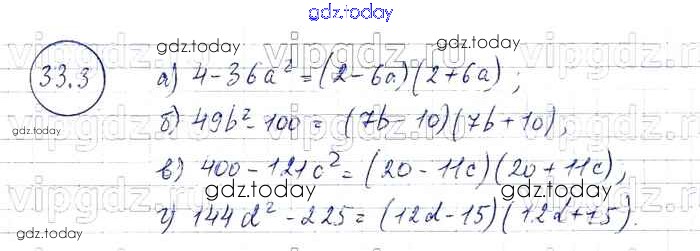 gdz.today
33.3
gdz.today
а) 4 - 36a² = (2 - 6a)(2 + 6a);
vipgdz.ru vipgdz.ru
gdz.today
gdz.today
б) 49b² - 100 = (7b - 10)(7b + 10);
gdz.today
в) 400 - 121c² = (20 - 11c)(20 + 11c);
vipgdz.ru vipgdz.ru
gdz.today
gdz.today
г) 144d² - 225 = (12d - 15)(12d + 15).
gdz.today